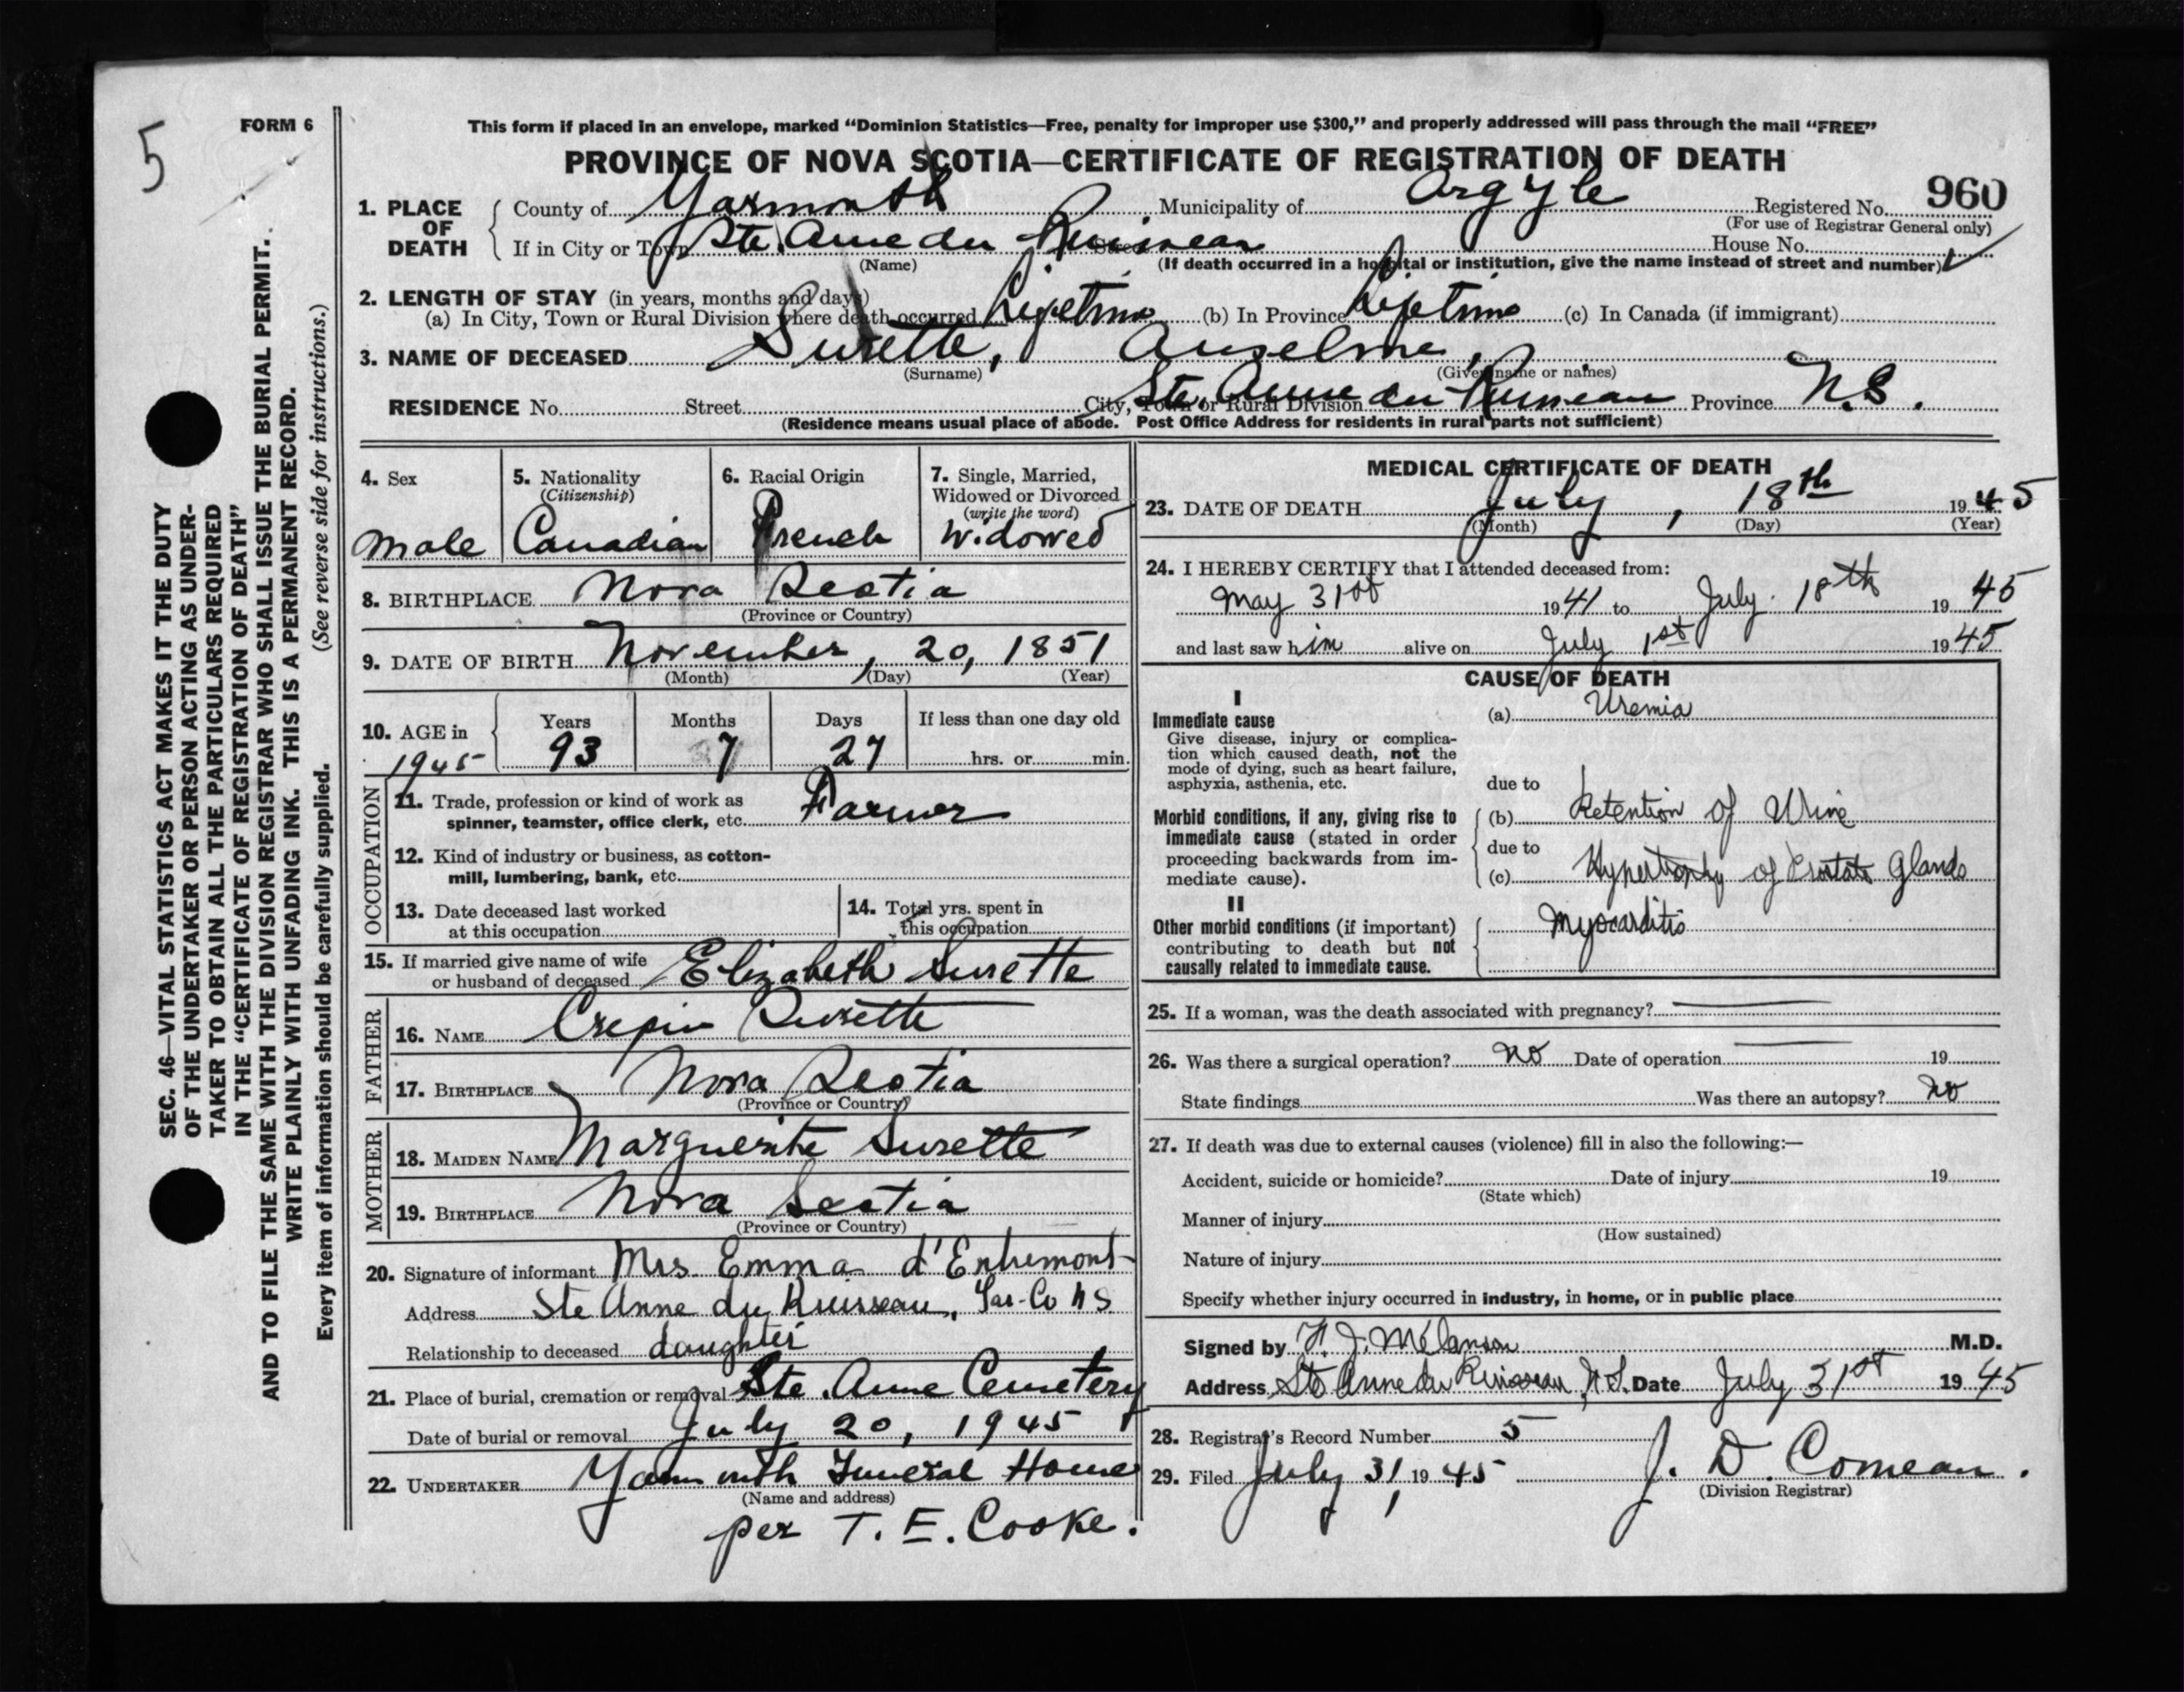 5
FORM 6
This form if placed in an envelope, marked "Dominion Statistics—Free, penalty for improper use $300," and properly addressed will pass through the mail "FREE"
PROVINCE OF NOVA SCOTIA—CERTIFICATE OF REGISTRATION OF DEATH
960
1. PLACE OF DEATH
County of Yarmouth Municipality of Argyle Registered No.
(For use of Registrar General only)
If in City or Town Ste. Anne du Ruisseau Street House No.
(Name) (If death occurred in a hospital or institution, give the name instead of street and number)
2. LENGTH OF STAY (in years, months and days)
(a) In City, Town or Rural Division where death occurred Lifetime (b) In Province Lifetime (c) In Canada (if immigrant)
3. NAME OF DECEASED Surette, Anselme,
(Surname) (Given name or names)
RESIDENCE No. Street City, Town or Rural Division Ste. Anne du Ruisseau Province N.S.
(Residence means usual place of abode. Post Office Address for residents in rural parts not sufficient)
4. Sex
Male
5. Nationality
(Citizenship)
Canadian
6. Racial Origin
French
7. Single, Married,
Widowed or Divorced
(write the word)
Widowed
8. BIRTHPLACE Nova Scotia
(Province or Country)
9. DATE OF BIRTH November, 20, 1851
(Month) (Day) (Year)
10. AGE in 1945
Years Months Days If less than one day old
93 7 27 hrs. or min.
OCCUPATION
11. Trade, profession or kind of work as
spinner, teamster, office clerk, etc. Farmer
12. Kind of industry or business, as cotton-
mill, lumbering, bank, etc.
13. Date deceased last worked
at this occupation
14. Total yrs. spent in
this occupation
15. If married give name of wife
or husband of deceased Elizabeth Surette
FATHER
16. NAME Crepin Surette
17. BIRTHPLACE Nova Scotia
(Province or Country)
MOTHER
18. MAIDEN NAME Marguerite Surette
19. BIRTHPLACE Nova Scotia
(Province or Country)
20. Signature of informant Mrs Emma d'Entremont
Address Ste Anne du Ruisseau, Yar-Co N S
Relationship to deceased daughter
21. Place of burial, cremation or removal Ste. Anne Cemetery
Date of burial or removal July 20, 1945
22. UNDERTAKER Yarmouth Funeral Home
(Name and address)
per T. E. Cooke.
MEDICAL CERTIFICATE OF DEATH
23. DATE OF DEATH July, 18th 1945
(Month) (Day) (Year)
24. I HEREBY CERTIFY that I attended deceased from:
May 31st 1941 to July 18th 1945
and last saw him alive on July 1st 1945
CAUSE OF DEATH
I
Immediate cause
Give disease, injury or complica-
tion which caused death, not the
mode of dying, such as heart failure,
asphyxia, asthenia, etc.
(a) Uremia
due to
Morbid conditions, if any, giving rise to
immediate cause (stated in order
proceeding backwards from im-
mediate cause).
(b) Retention of Urine
due to
(c) Hypertrophy of Prostate Glands
II
Other morbid conditions (if important)
contributing to death but not
causally related to immediate cause.
Myocarditis
25. If a woman, was the death associated with pregnancy?
26. Was there a surgical operation? no Date of operation 19
State findings Was there an autopsy? no
27. If death was due to external causes (violence) fill in also the following:—
Accident, suicide or homicide? Date of injury 19
(State which)
Manner of injury
(How sustained)
Nature of injury
Specify whether injury occurred in industry, in home, or in public place
Signed by F. J. Melanson M.D.
Address Ste Anne du Ruisseau, N.S. Date July 31st 1945
28. Registrar's Record Number 5
29. Filed July 31, 1945 J. D. Comeau.
(Division Registrar)
SEC. 46—VITAL STATISTICS ACT MAKES IT THE DUTY
OF THE UNDERTAKER OR PERSON ACTING AS UNDER-
TAKER TO OBTAIN ALL THE PARTICULARS REQUIRED
IN THE "CERTIFICATE OF REGISTRATION OF DEATH"
AND TO FILE THE SAME WITH THE DIVISION REGISTRAR WHO SHALL ISSUE THE BURIAL PERMIT.
WRITE PLAINLY WITH UNFADING INK. THIS IS A PERMANENT RECORD.
Every item of information should be carefully supplied. (See reverse side for instructions.)